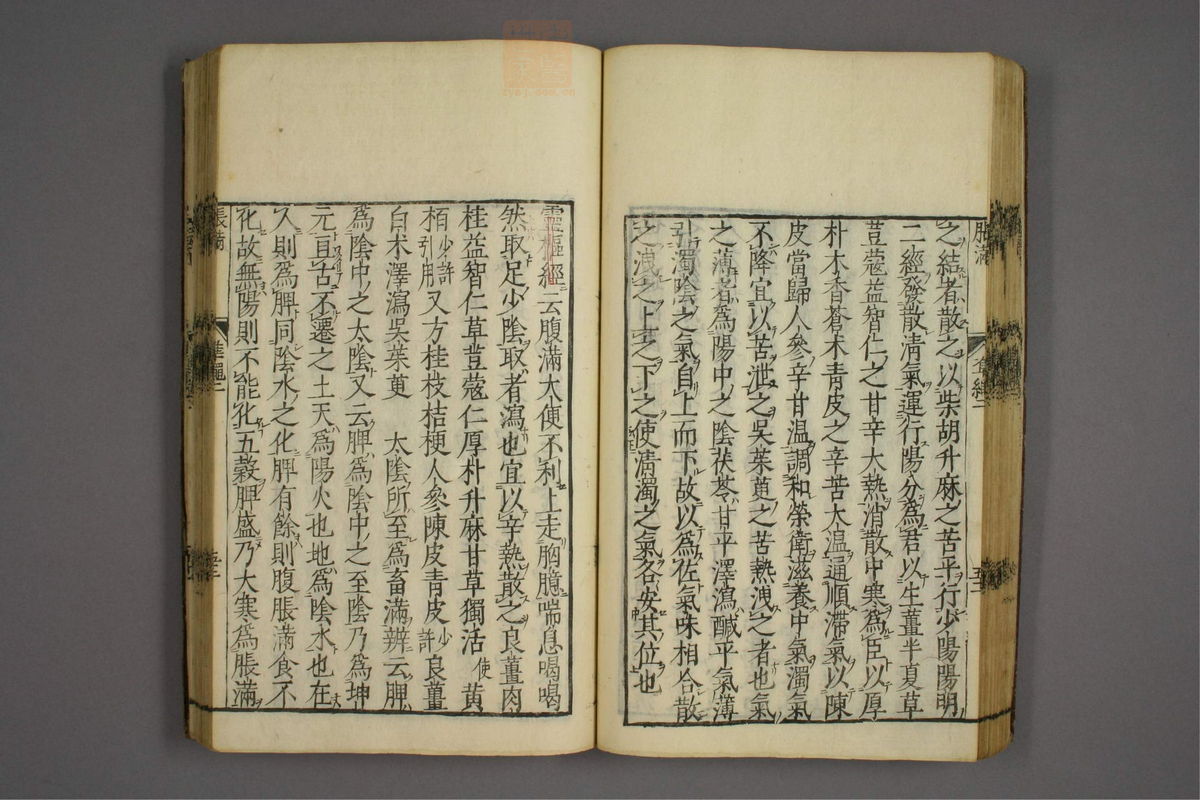 脹滿
之結者散之以柴胡升麻之苦平行少陽陽明
二經發散清氣運行陽分爲君以生薑半夏草
荳蔻益智仁之甘辛大熱消散中寒爲臣以厚
朴木香蒼朮青皮之辛苦大温通順滯氣以陳
皮當歸人參辛甘温調和榮衛滋養中氣濁氣
不降宜以苦泄之吳茱萸之苦熱洩之者也氣
之薄者爲陽中之陰茯苓甘平澤瀉醎平氣薄
引濁陰之氣自上而下故以爲佐氣味相合散
之洩之上之下之使清濁之氣各安其位也
靈樞經云腹滿大便不利上走胸臆喘息喝喝
然取足少陰取者瀉也宜以辛熱散之良薑肉
桂益智仁草荳蔻仁厚朴升麻甘草獨活使黄
栢少許引用又方桂枝桔梗人參陳皮青皮少許良薑
白朮澤瀉吳茱萸 太陰所至爲畜滿辨云脾
爲陰中之太陰又云脾爲陰中之至陰乃爲坤
元亘古不遷之土天爲陽火也地爲陰水也在
人則爲脾同陰水之化脾有餘則腹脹滿食不
化故無陽則不能化五穀脾盛乃大寒爲脹滿